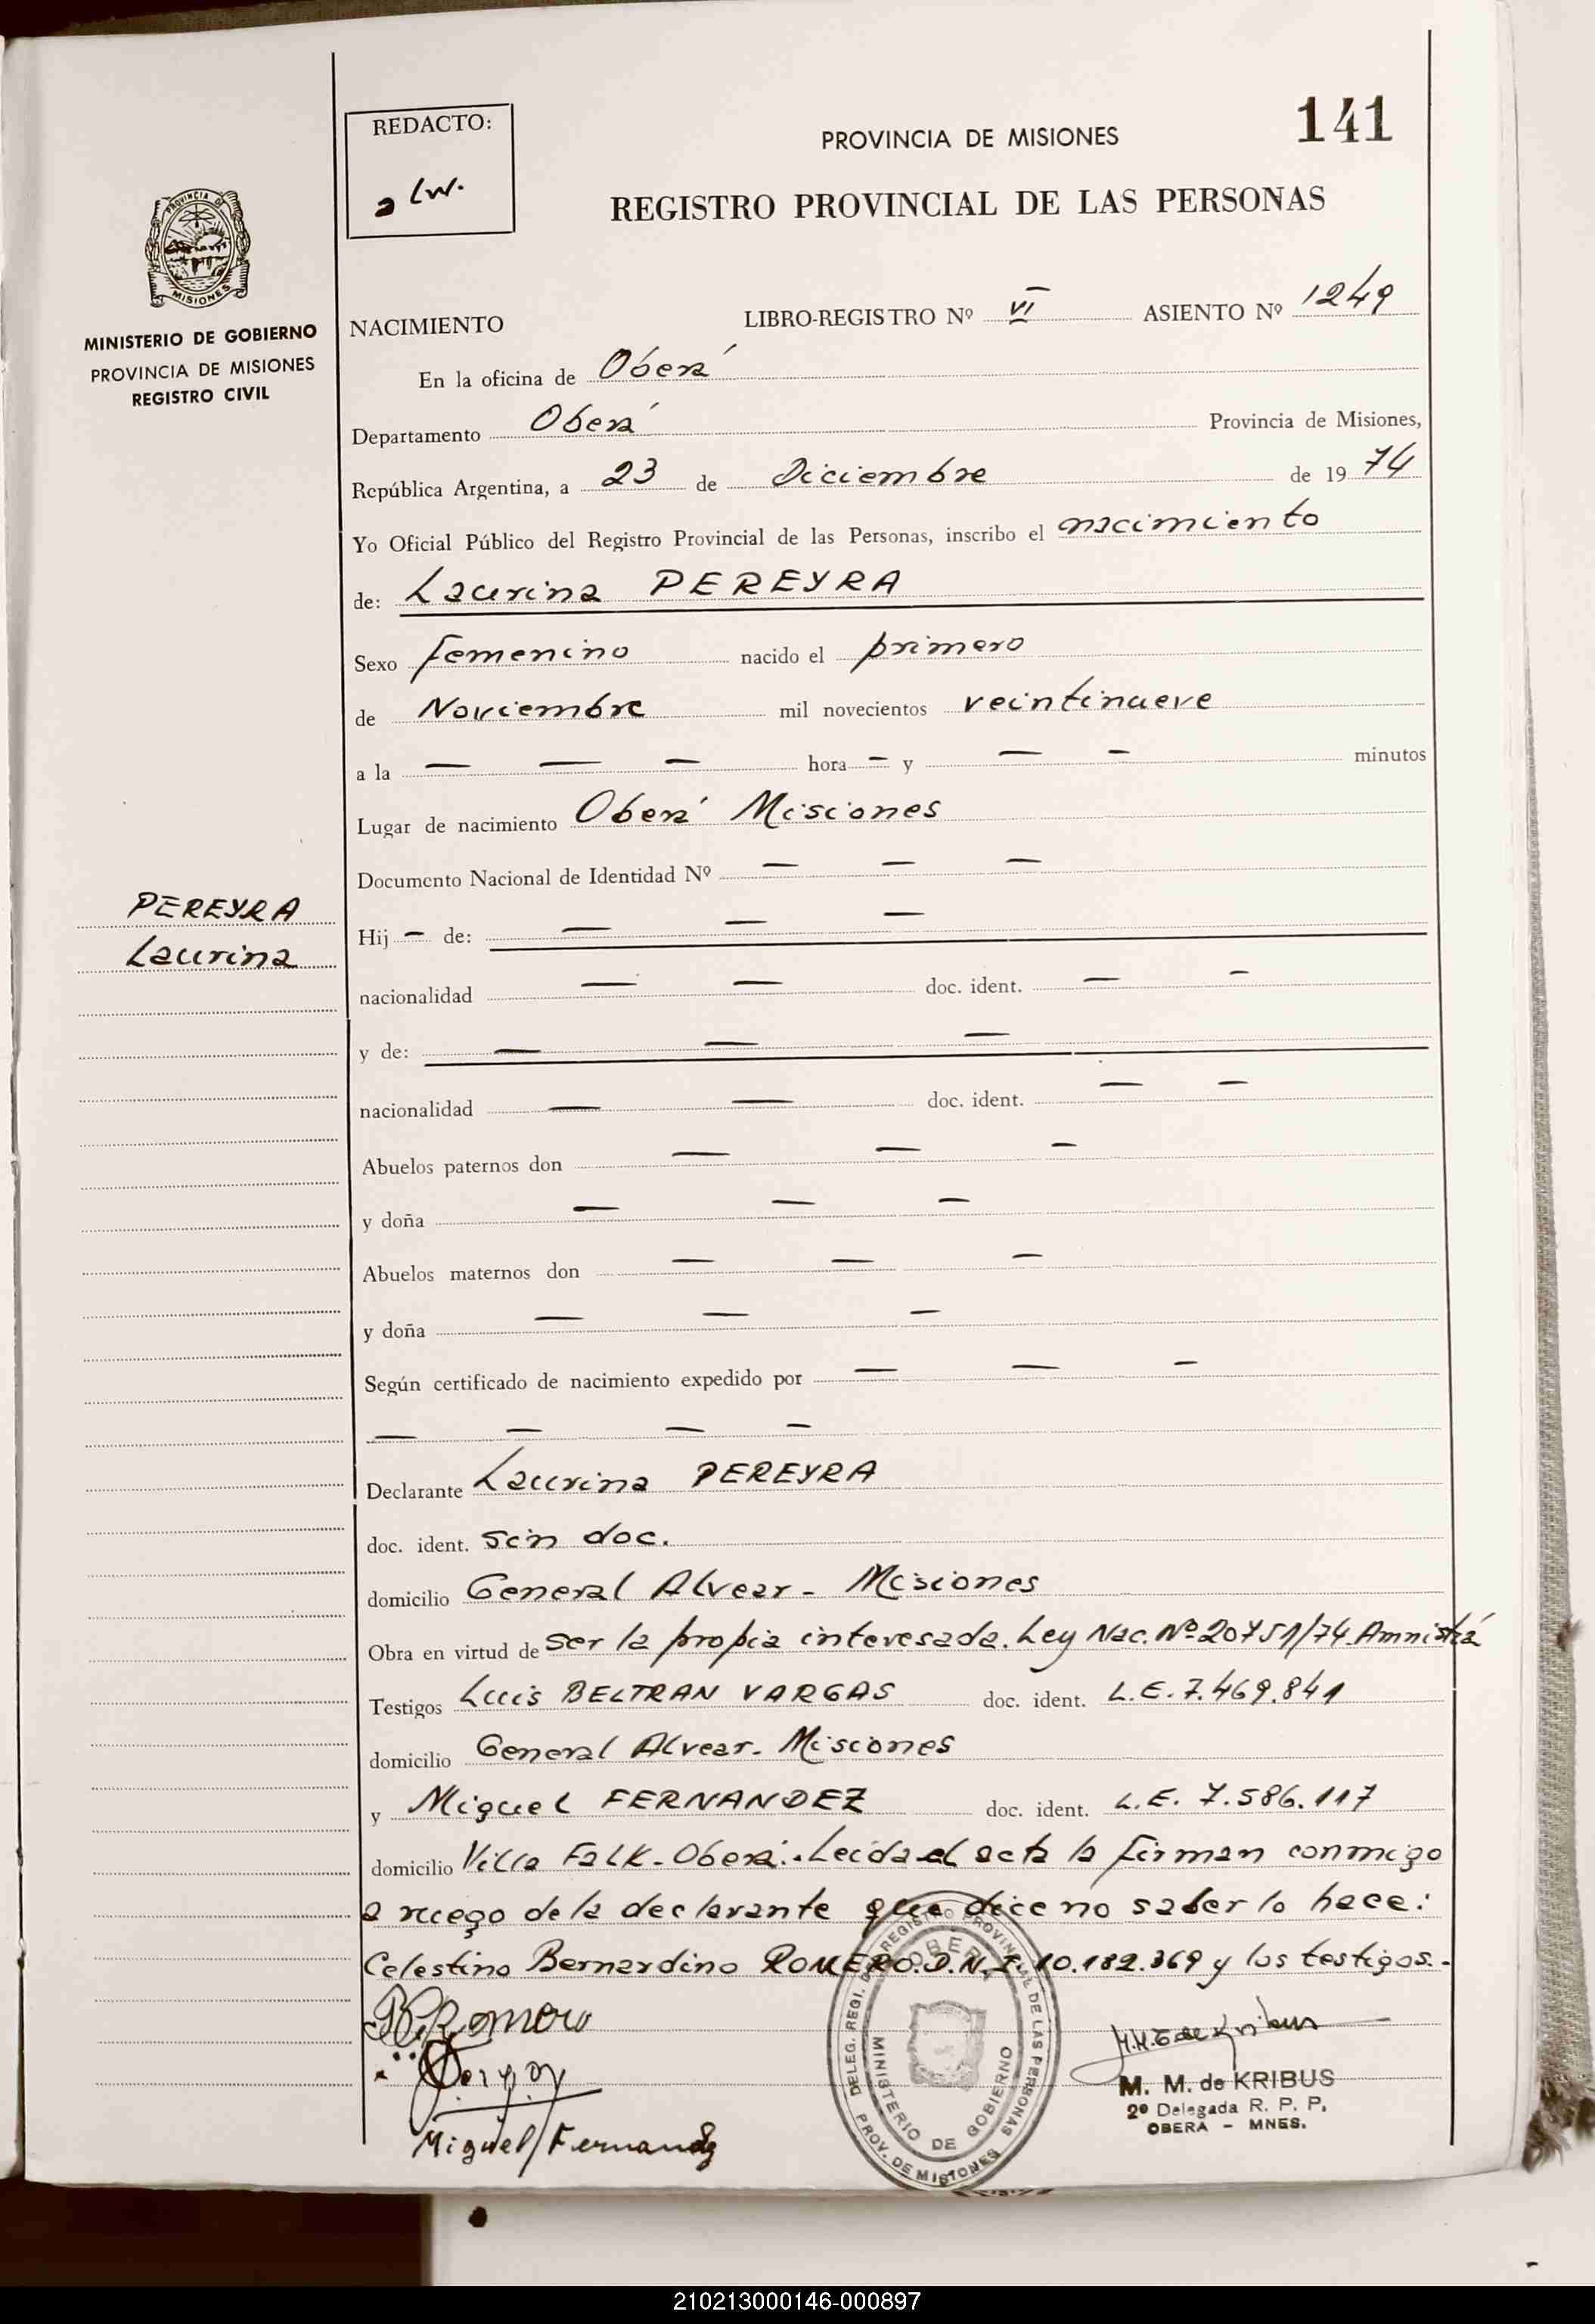 141
REDACTO:
a lw.
PROVINCIA DE MISIONES
REGISTRO PROVINCIAL DE LAS PERSONAS
PROVINCIA DE
MISIONES
MINISTERIO DE GOBIERNO
PROVINCIA DE MISIONES
REGISTRO CIVIL
NACIMIENTO LIBRO-REGISTRO Nº VI ASIENTO Nº 1249
En la oficina de Oberá
Departamento Oberá Provincia de Misiones,
República Argentina, a 23 de Diciembre de 19 74
Yo Oficial Público del Registro Provincial de las Personas, inscribo el nacimiento
de: Laurina PEREYRA
Sexo femenino nacido el primero
de Noviembre mil novecientos veintinueve
a la — — — hora — y — — minutos
Lugar de nacimiento Oberá Misiones
Documento Nacional de Identidad Nº — — —
PEREYRA
Laurina
Hij — de: — — —
nacionalidad — — doc. ident. — —
y de: — — —
nacionalidad — — doc. ident. — —
Abuelos paternos don — — —
y doña — — —
Abuelos maternos don — — —
y doña — — —
Según certificado de nacimiento expedido por — — —
— — — —
Declarante Laurina PEREYRA
doc. ident. sin doc.
domicilio General Alvear - Misiones
Obra en virtud de ser la propia interesada. Ley Nac. Nº 20751/74 Amnistía
Testigos Luis BELTRAN VARGAS doc. ident. L.E. 7.469.841
domicilio General Alvear. Misiones
y Miguel FERNANDEZ doc. ident. L.E. 7.586.117
domicilio Villa Falk - Oberá.. Leida el acta la firman conmigo
a ruego de la declarante que dice no saber lo hace:
Celestino Bernardino ROMERO. D.N.I. 10.182.369 y los testigos.-
B Romero
Miguel Fernandez
DELEG. REGI. DEL REGISTRO PROVINCIAL DE LAS PERSONAS
OBERA
MINISTERIO DE GOBIERNO
PROV. DE MISIONES
M. M. de Kribus
M. M. de KRIBUS
2º Delegada R. P. P.
OBERA - MNES.
210213000146-000897